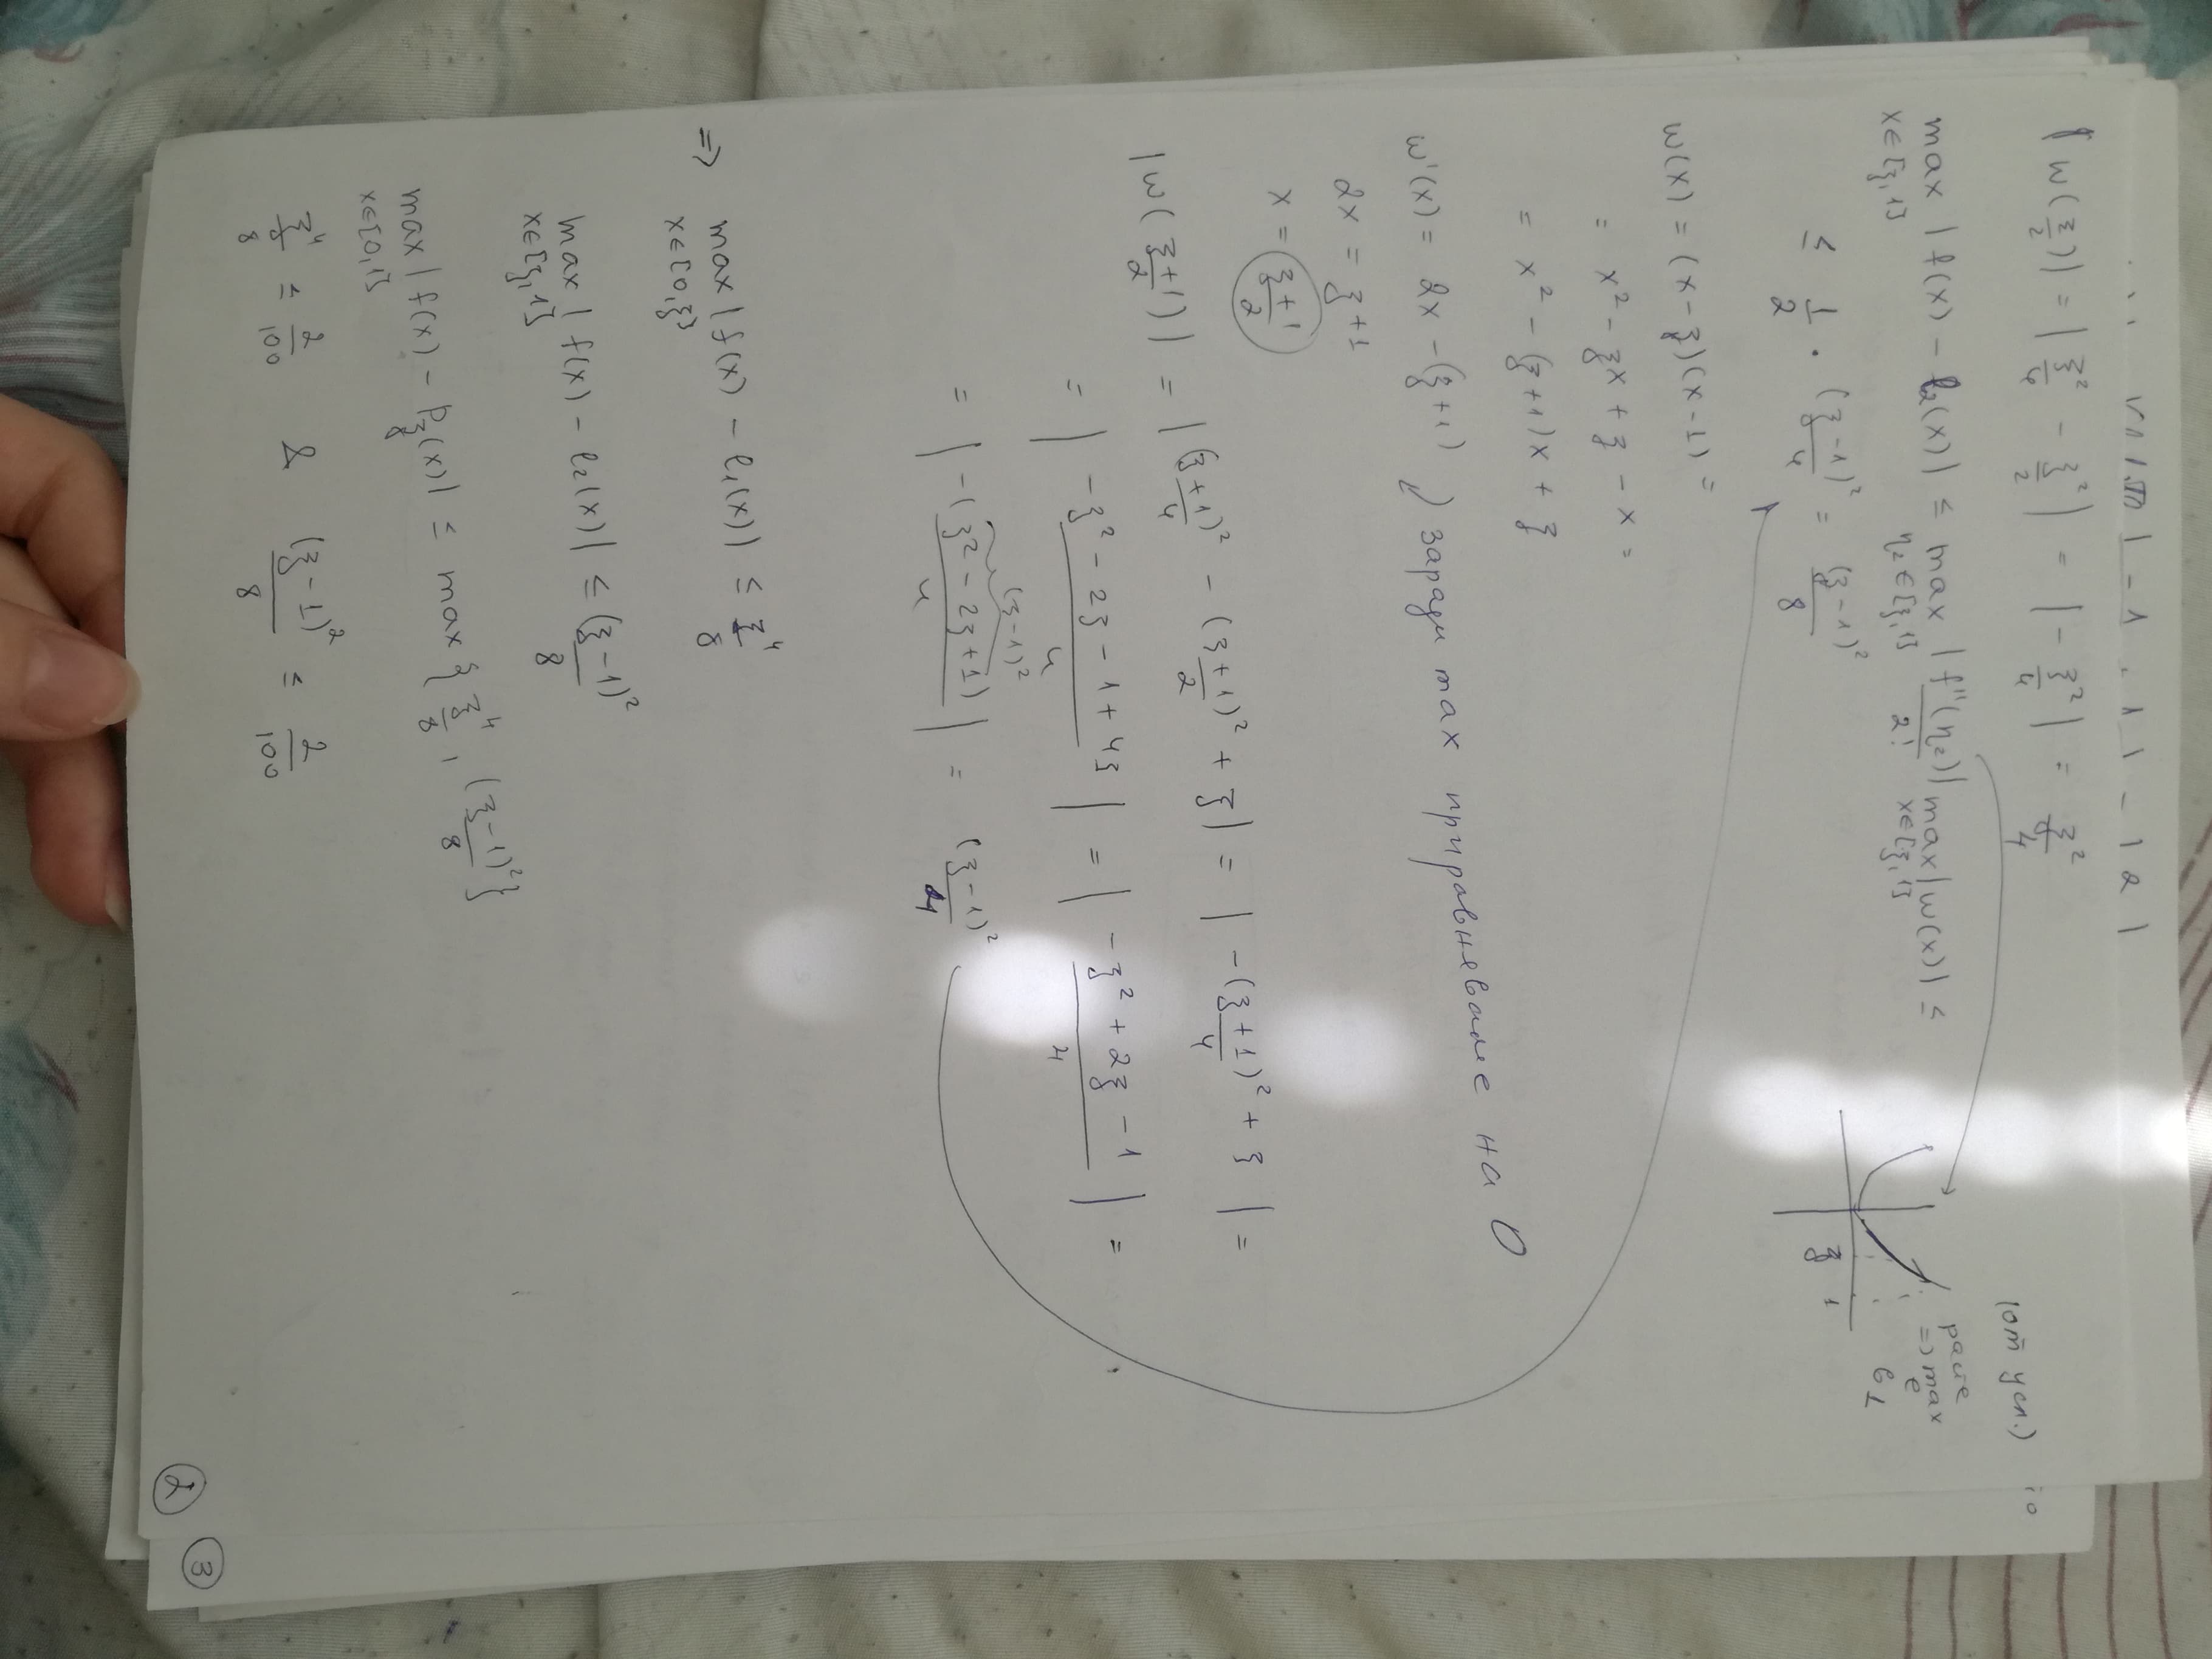 |w(ξ/2)| = |ξ²/4 - ξ²/2| = |-ξ²/4| = ξ²/4
(от усл.)
max x∈[ξ,1] |f(x) - l₂(x)| ≤ max η₂∈[ξ,1] |f''(η₂)|/2! max x∈[ξ,1] |w(x)| ≤
расте
=> max
е
в 1
ξ 1
≤ 1/2 · (ξ-1)²/4 = (ξ-1)²/8
w(x) = (x-ξ)(x-1) =
= x² - ξx + ξ - x =
= x² - (ξ+1)x + ξ
w'(x) = 2x - (ξ+1) заради max приравняваме на 0
2x = ξ+1
x = (ξ+1)/2
|w((ξ+1)/2)| = |(ξ+1)²/4 - (ξ+1)²/2 + ξ| = |-(ξ+1)²/4 + ξ| =
= |(-ξ² - 2ξ - 1 + 4ξ)/4| = |(-ξ² + 2ξ - 1)/4| =
(ξ-1)²
= |-(ξ² - 2ξ + 1)/4| = (ξ-1)²/4
=> max x∈[0,ξ] |f(x) - l₁(x)| ≤ ξ⁴/8
max x∈[ξ,1] |f(x) - l₂(x)| ≤ (ξ-1)²/8
max x∈[0,1] |f(x) - Pξ(x)| ≤ max {ξ⁴/8, (ξ-1)²/8}
ξ⁴/8 ≤ 2/100 & (ξ-1)²/8 ≤ 2/100
2
3